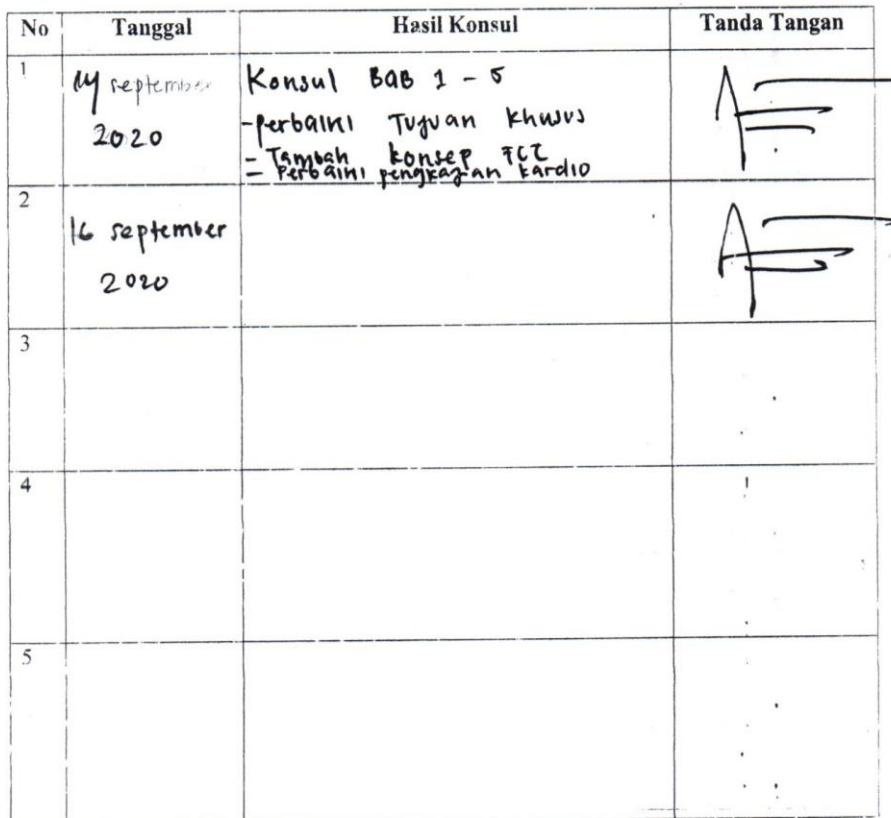 No Tanggal Hasil Konsul Tanda Tangan
1 14 september Konsul BAB 1 - 5
2020 - perbaiki Tujuan khusus
- Tambah konsep
- Perbaiki pengkajian kardio
2 16 september
2020
3
4
5